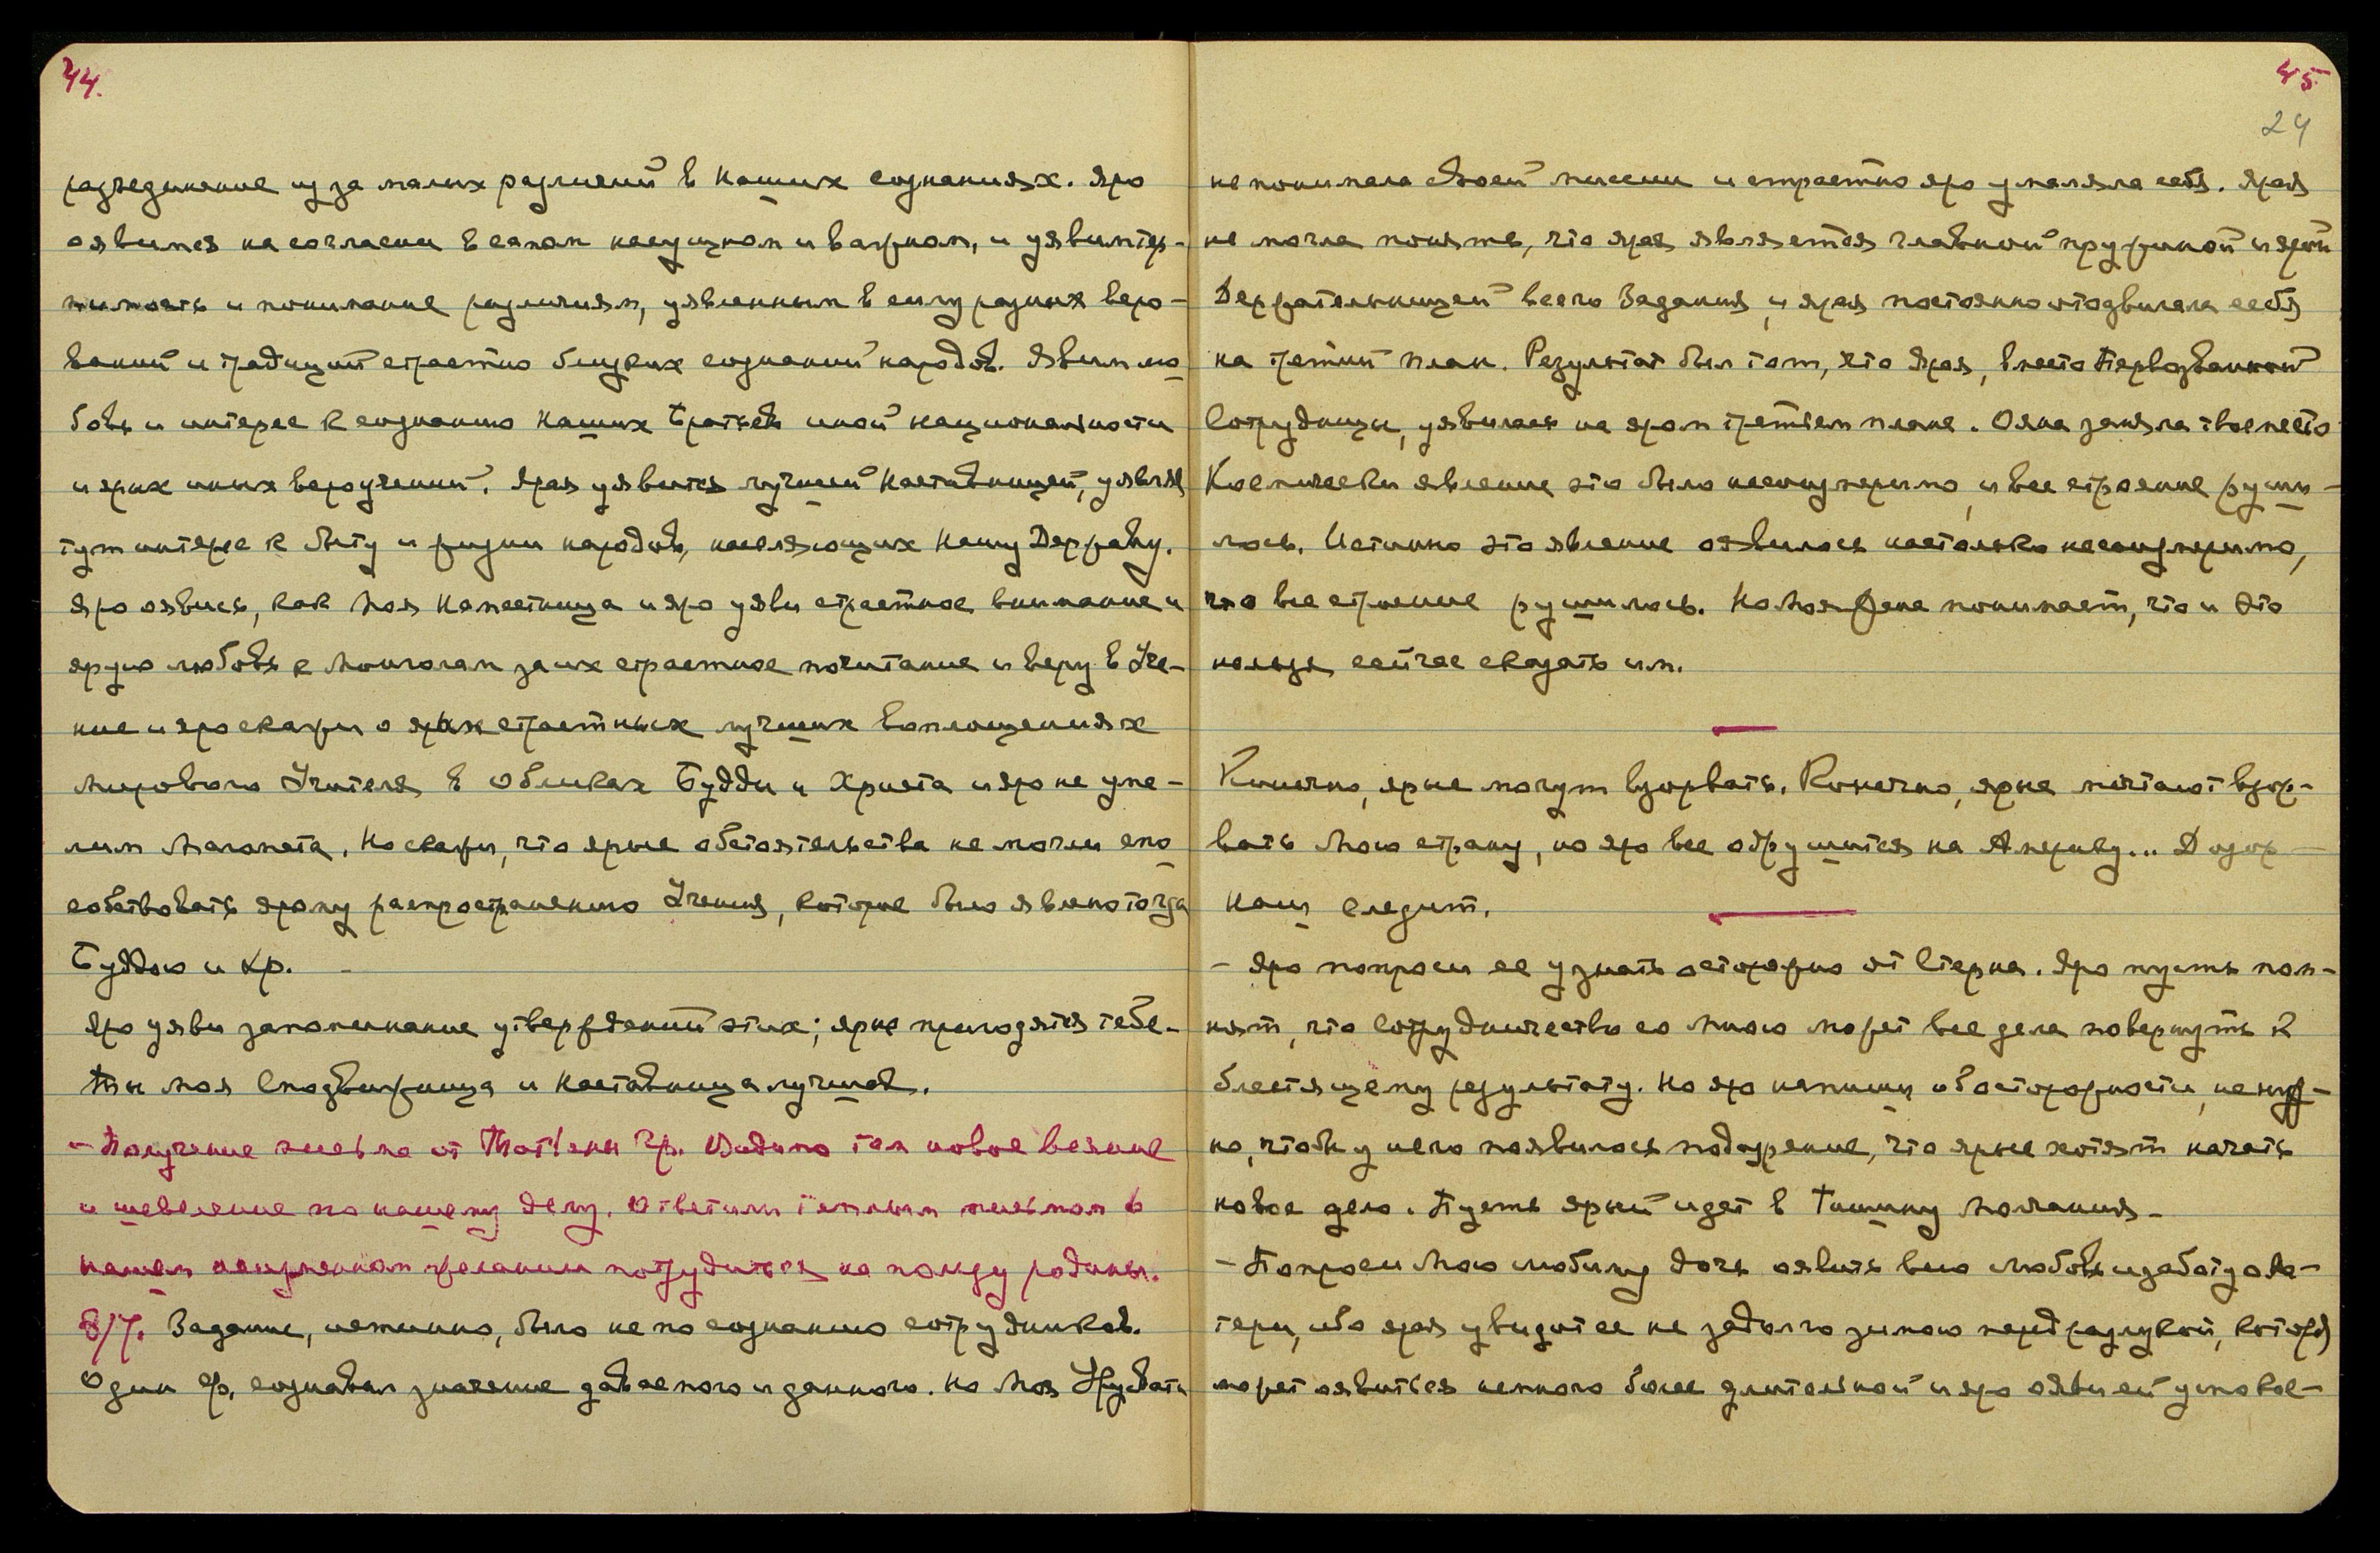 44.
разъединение из за малых различий в наших сознаниях. Яро
оявимся на согласии в самом насущном и важном, и уявим тер-
пимость и понимание различиям, уявленным в силу разных веро-
ваний и традиций страстно близких сознаний народов. Явим лю
бовь и интерес к сознанию наших Братьев иной национальности
и ярых иных вероучений. Ярая уявится лучшей Наставницей, уявляя
тут интерес к быту и жизни народов, населяющих Нашу Державу.
Яро оявись, как Моя Наместница и яро уяви страстное внимание и
ярую любовь к Монголам за их страстное почитание и веру в Уче-
ние и яро скажи о ярых страстных лучших воплощениях
Мирового Учителя в Обликах Будды и Христа и яро не ума-
лим Магомета. Но скажи, что ярые обстоятельства не могли спо
собствовать ярому распространению Учения, которое было явлено тогда
Буддою и Хр. -
Яро уяви запоминание утверждений этих; ярые пригодятся тебе-
Ты Моя Сподвижница и Наставница лучшая.
- Получение письма от Татьяны Гр. Видимо там новое веяние
и шевеление по нашему делу. Ответили теплым письмом о
нашем неизменном желании потрудиться на пользу родины.
8/7. Задание, истинно, было не по сознанию сотрудников.
Один Ф. сознавал значение даваемого и данного. Но Моя Урусвати
45.
24
не понимала Своей миссии и страстно яро умаляла себя. Ярая
не могла понять, что ярая является главной пружиной и ярой
Держательницей всего Задания, и ярая постоянно отодвигала себя
на третий план. Результат был тот, что Ярая, вместо Первозванной
Сотрудницы, уявилась на яром третьем плане. Ояна заняла твое место
Космически явление это было несоизмеримо, и все строение руши-
лось. Истинно это явление оявилось настолько несоизмеримо,
что все строение рушилось. Но Моя Жена понимает, что и это
нельзя сейчас сказать им.
Конечно, ярые могут взорвать. Конечно, ярые мечтают взор-
вать Мою страну, но яро все обрушится на Америку... Дозор
Наш следит.
- Яро попроси ее узнать осторожно от Стерна. Яро пусть пой-
мет, что сотрудничество со Мною может все дела повернуть к
блестящему результату. Но яро напиши об осторожности, не нуж-
но, чтобы у него появилось подозрение, что ярые хотят начать
новое дело. Пусть ярый идет в Тишину Молчания -
- Попроси Мою любимую дочь оявить всю любовь и заботу о Ма-
тери, ибо ярая увидит ее не задолго зимою перед разлукой, которая
может оявиться немного более длительной и яро ояви ей успокое-